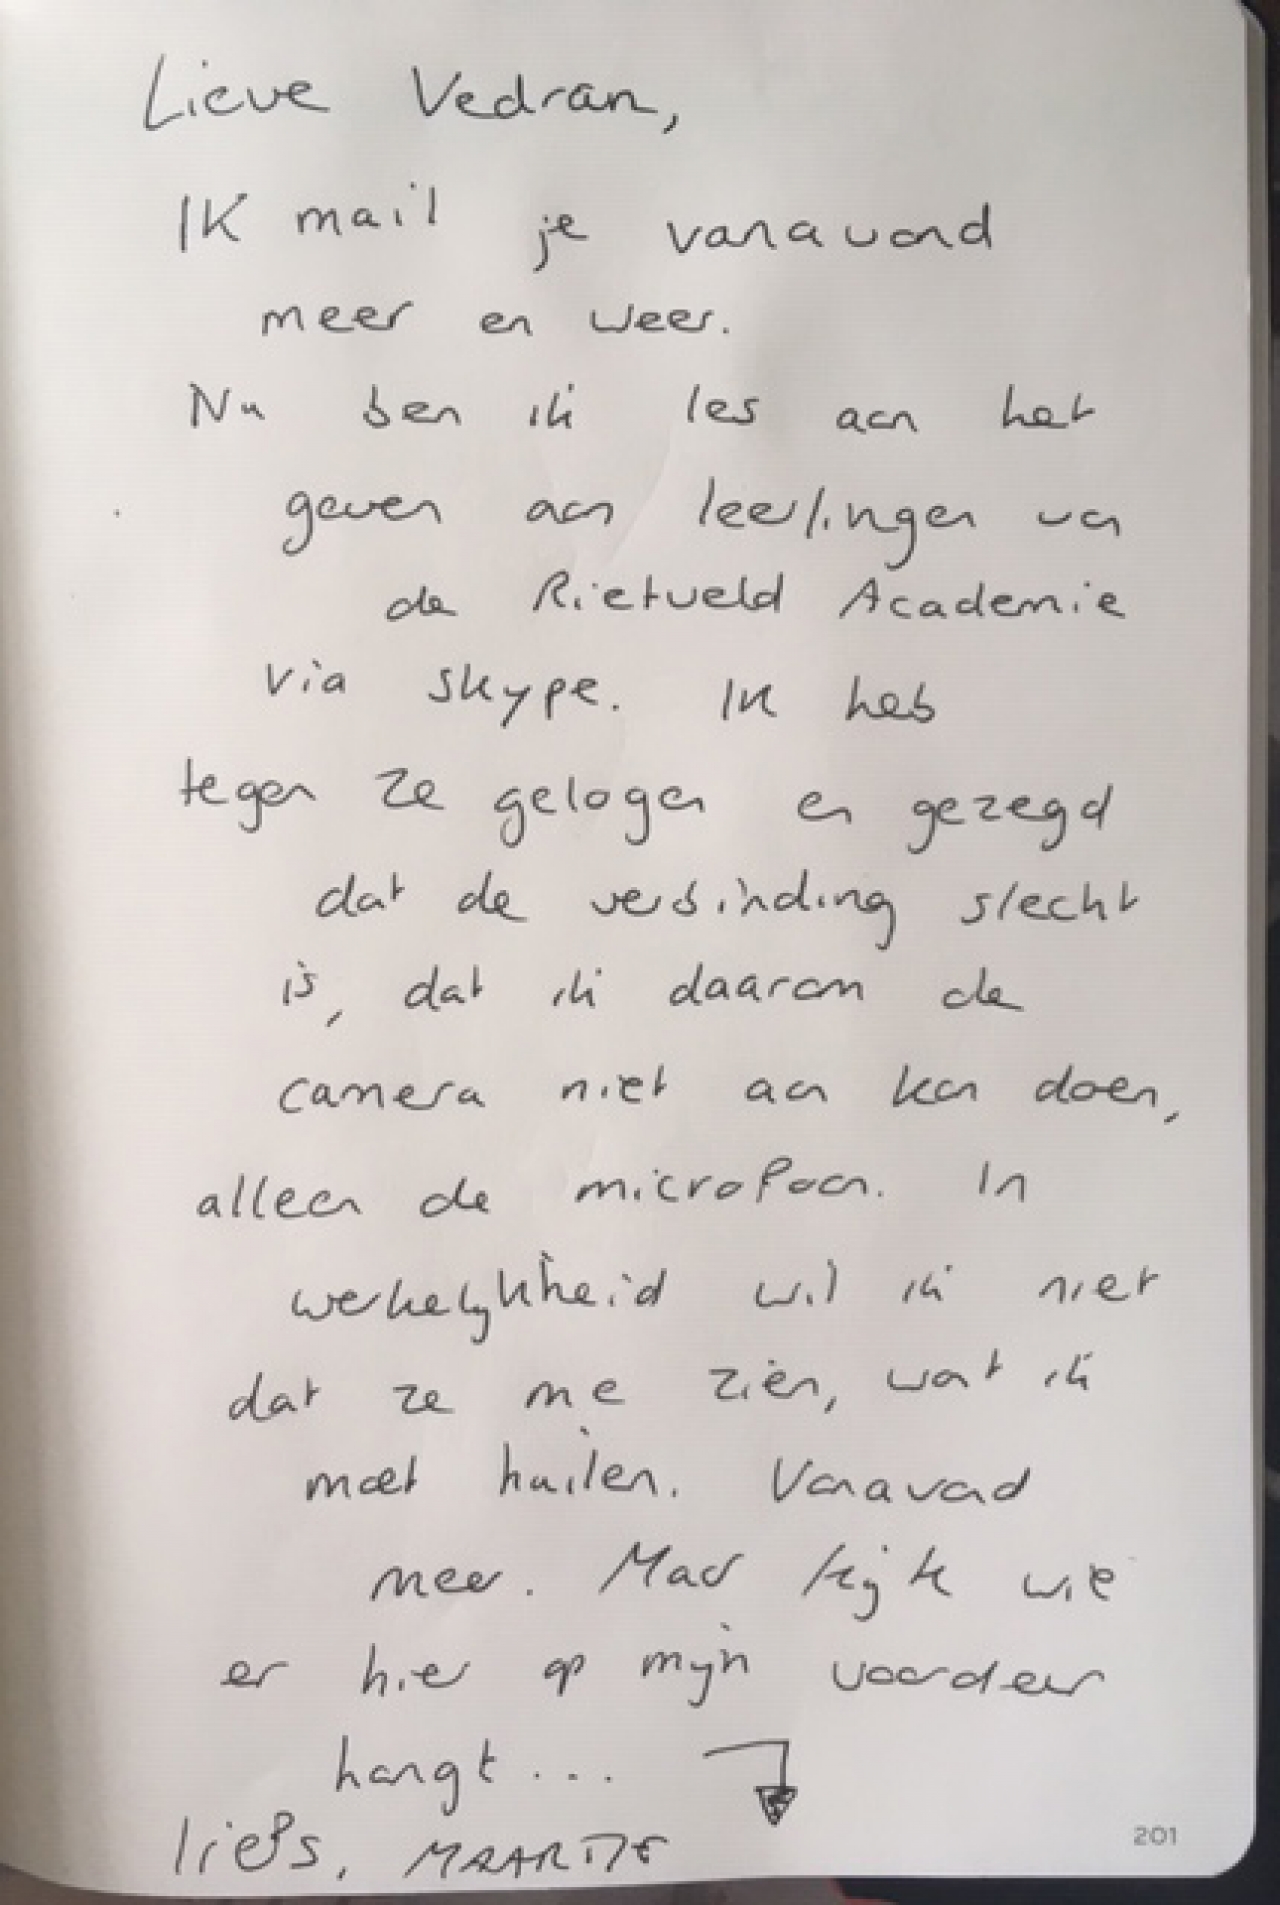 Lieve Vedran,
IK mail je vanavond
meer en weer.
Nu ben ik les aan het
geven aan leerlingen van
de Rietveld Academie
via skype. IK heb
tegen ze gelogen en gezegd
dat de verbinding slecht
is, dat ik daarom de
camera niet aan kan doen,
alleen de microfoon. In
werkelijkheid wil ik niet
dat ze me zien, want ik
moet huilen. Vanavond
meer. Maar kijk wie
er hier op mijn voordeur
hangt...
liefs, MAARTJE
201